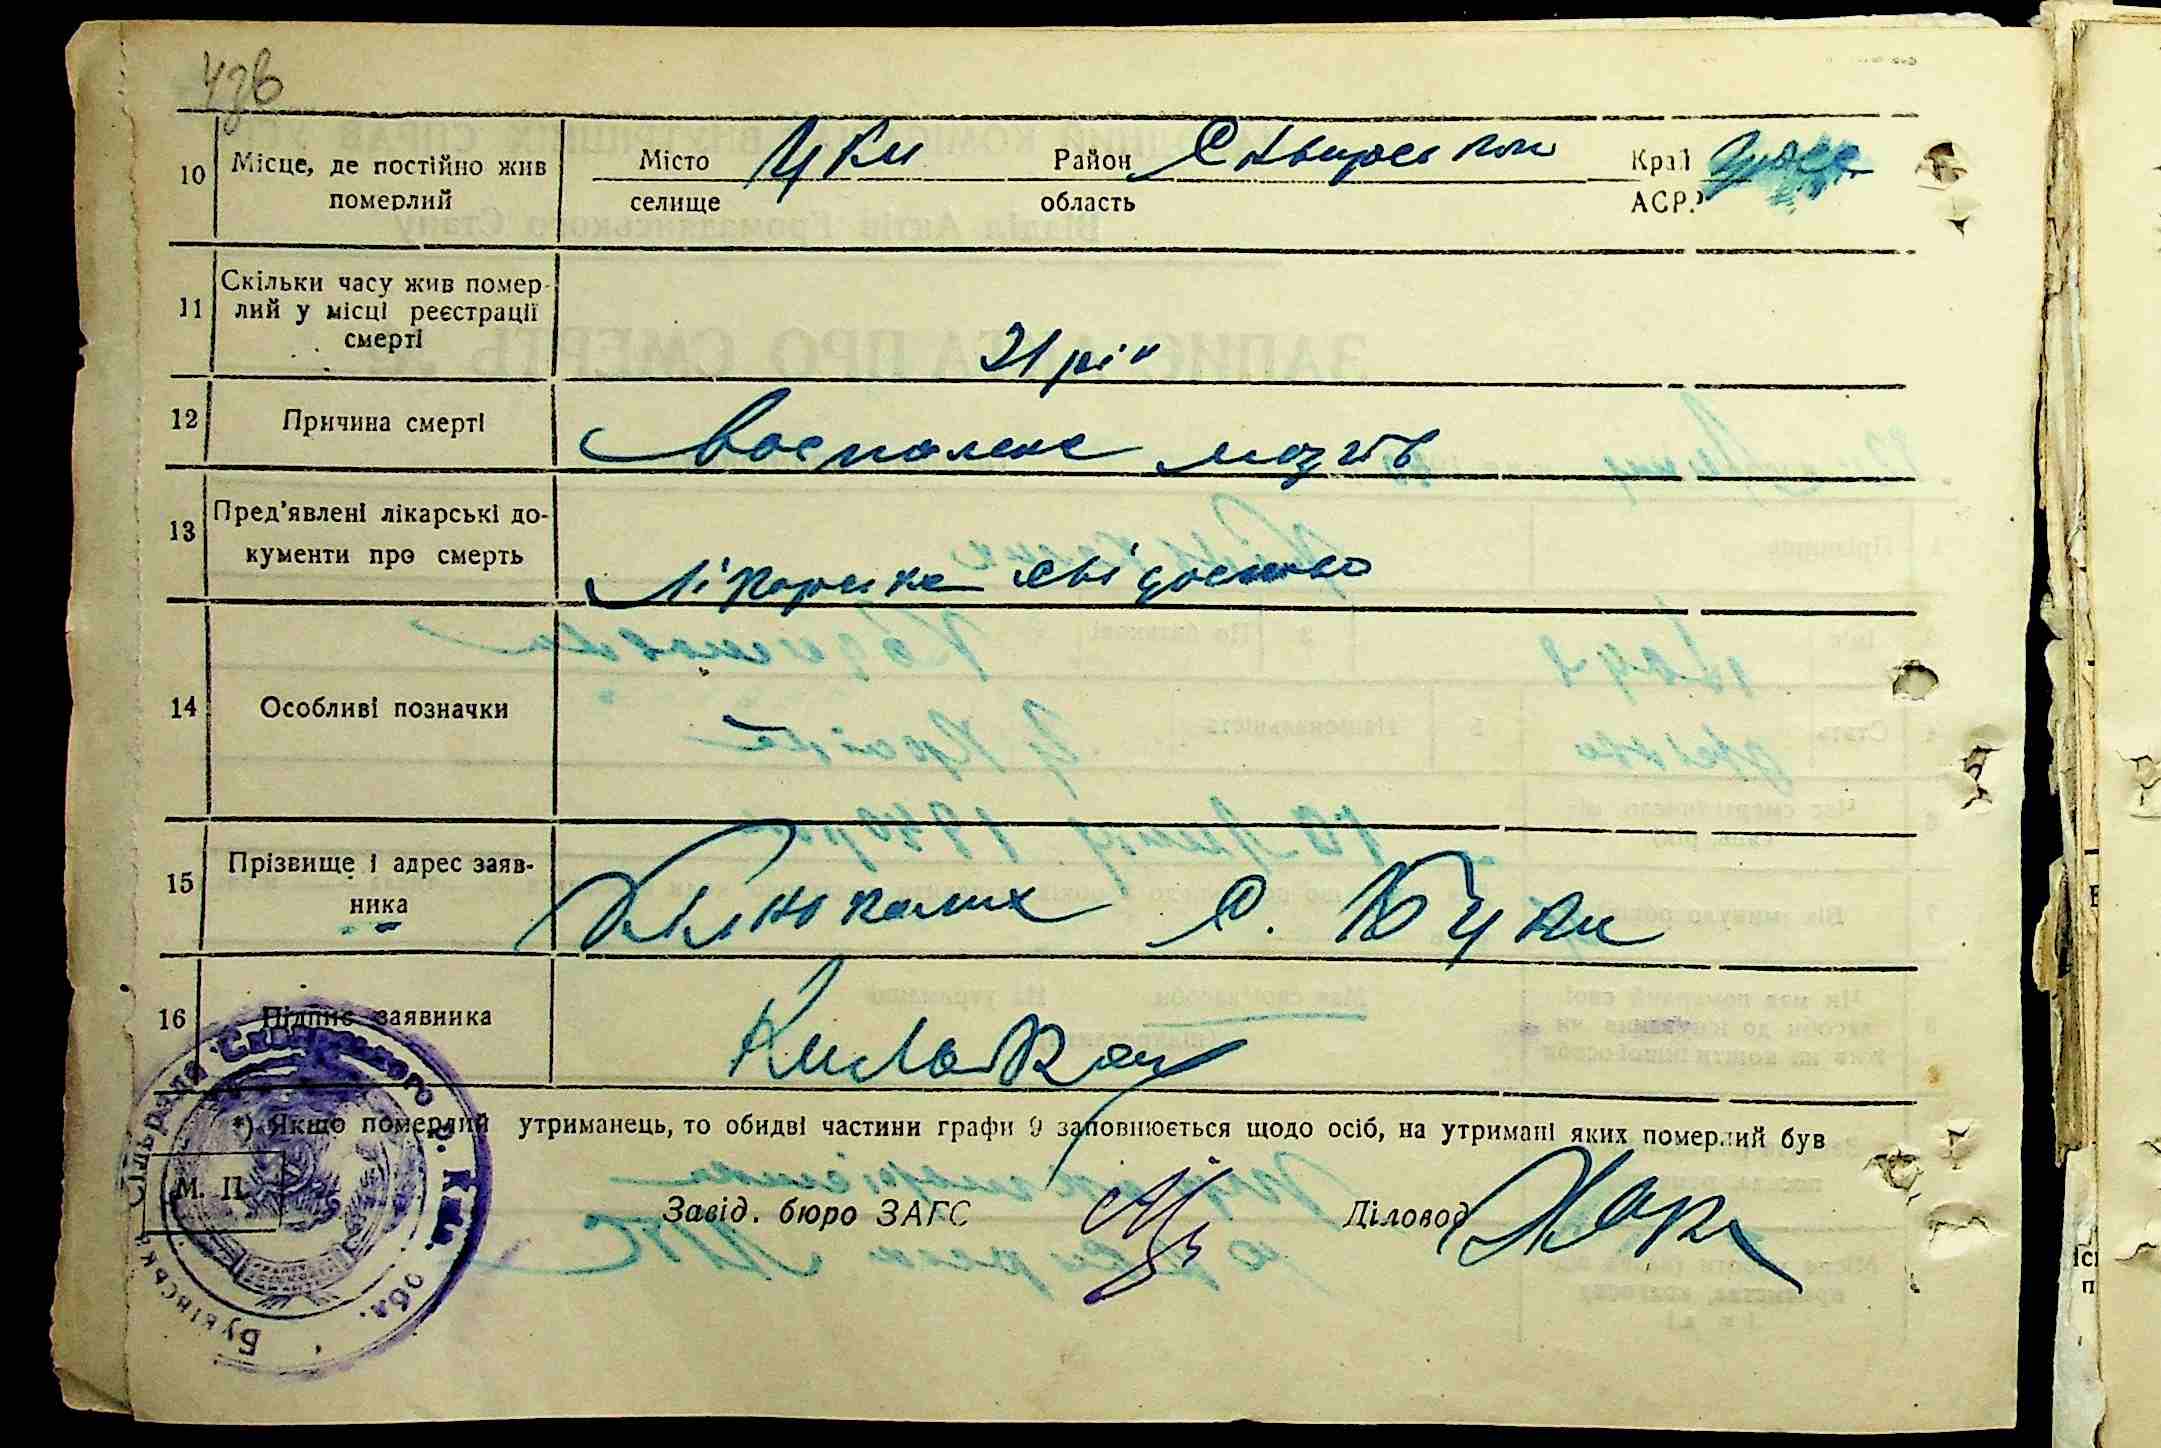 10 Місце, де постійно жив померлий
Місто Цки Район Сквирський Край УРСР
селище область АСРР
11 Скільки часу жив помер-
лий у місці реєстрації
смерті
21 рік
12 Причина смерті
Воспалене мозгів
13 Пред'явлені лікарські до-
кументи про смерть
Лікарське свідоство
14 Особливі позначки
15 Прізвище і адрес заяв-
ника
с. Буки
16 Підпис заявника
*) Якщо померлий утриманець, то обидві частини графи 9 заповнюється щодо осіб, на утримані яких померлий був
М. П.
Завід. бюро ЗАГС Діловод
Буківська сільрада Сквирського р. Київ. обл.